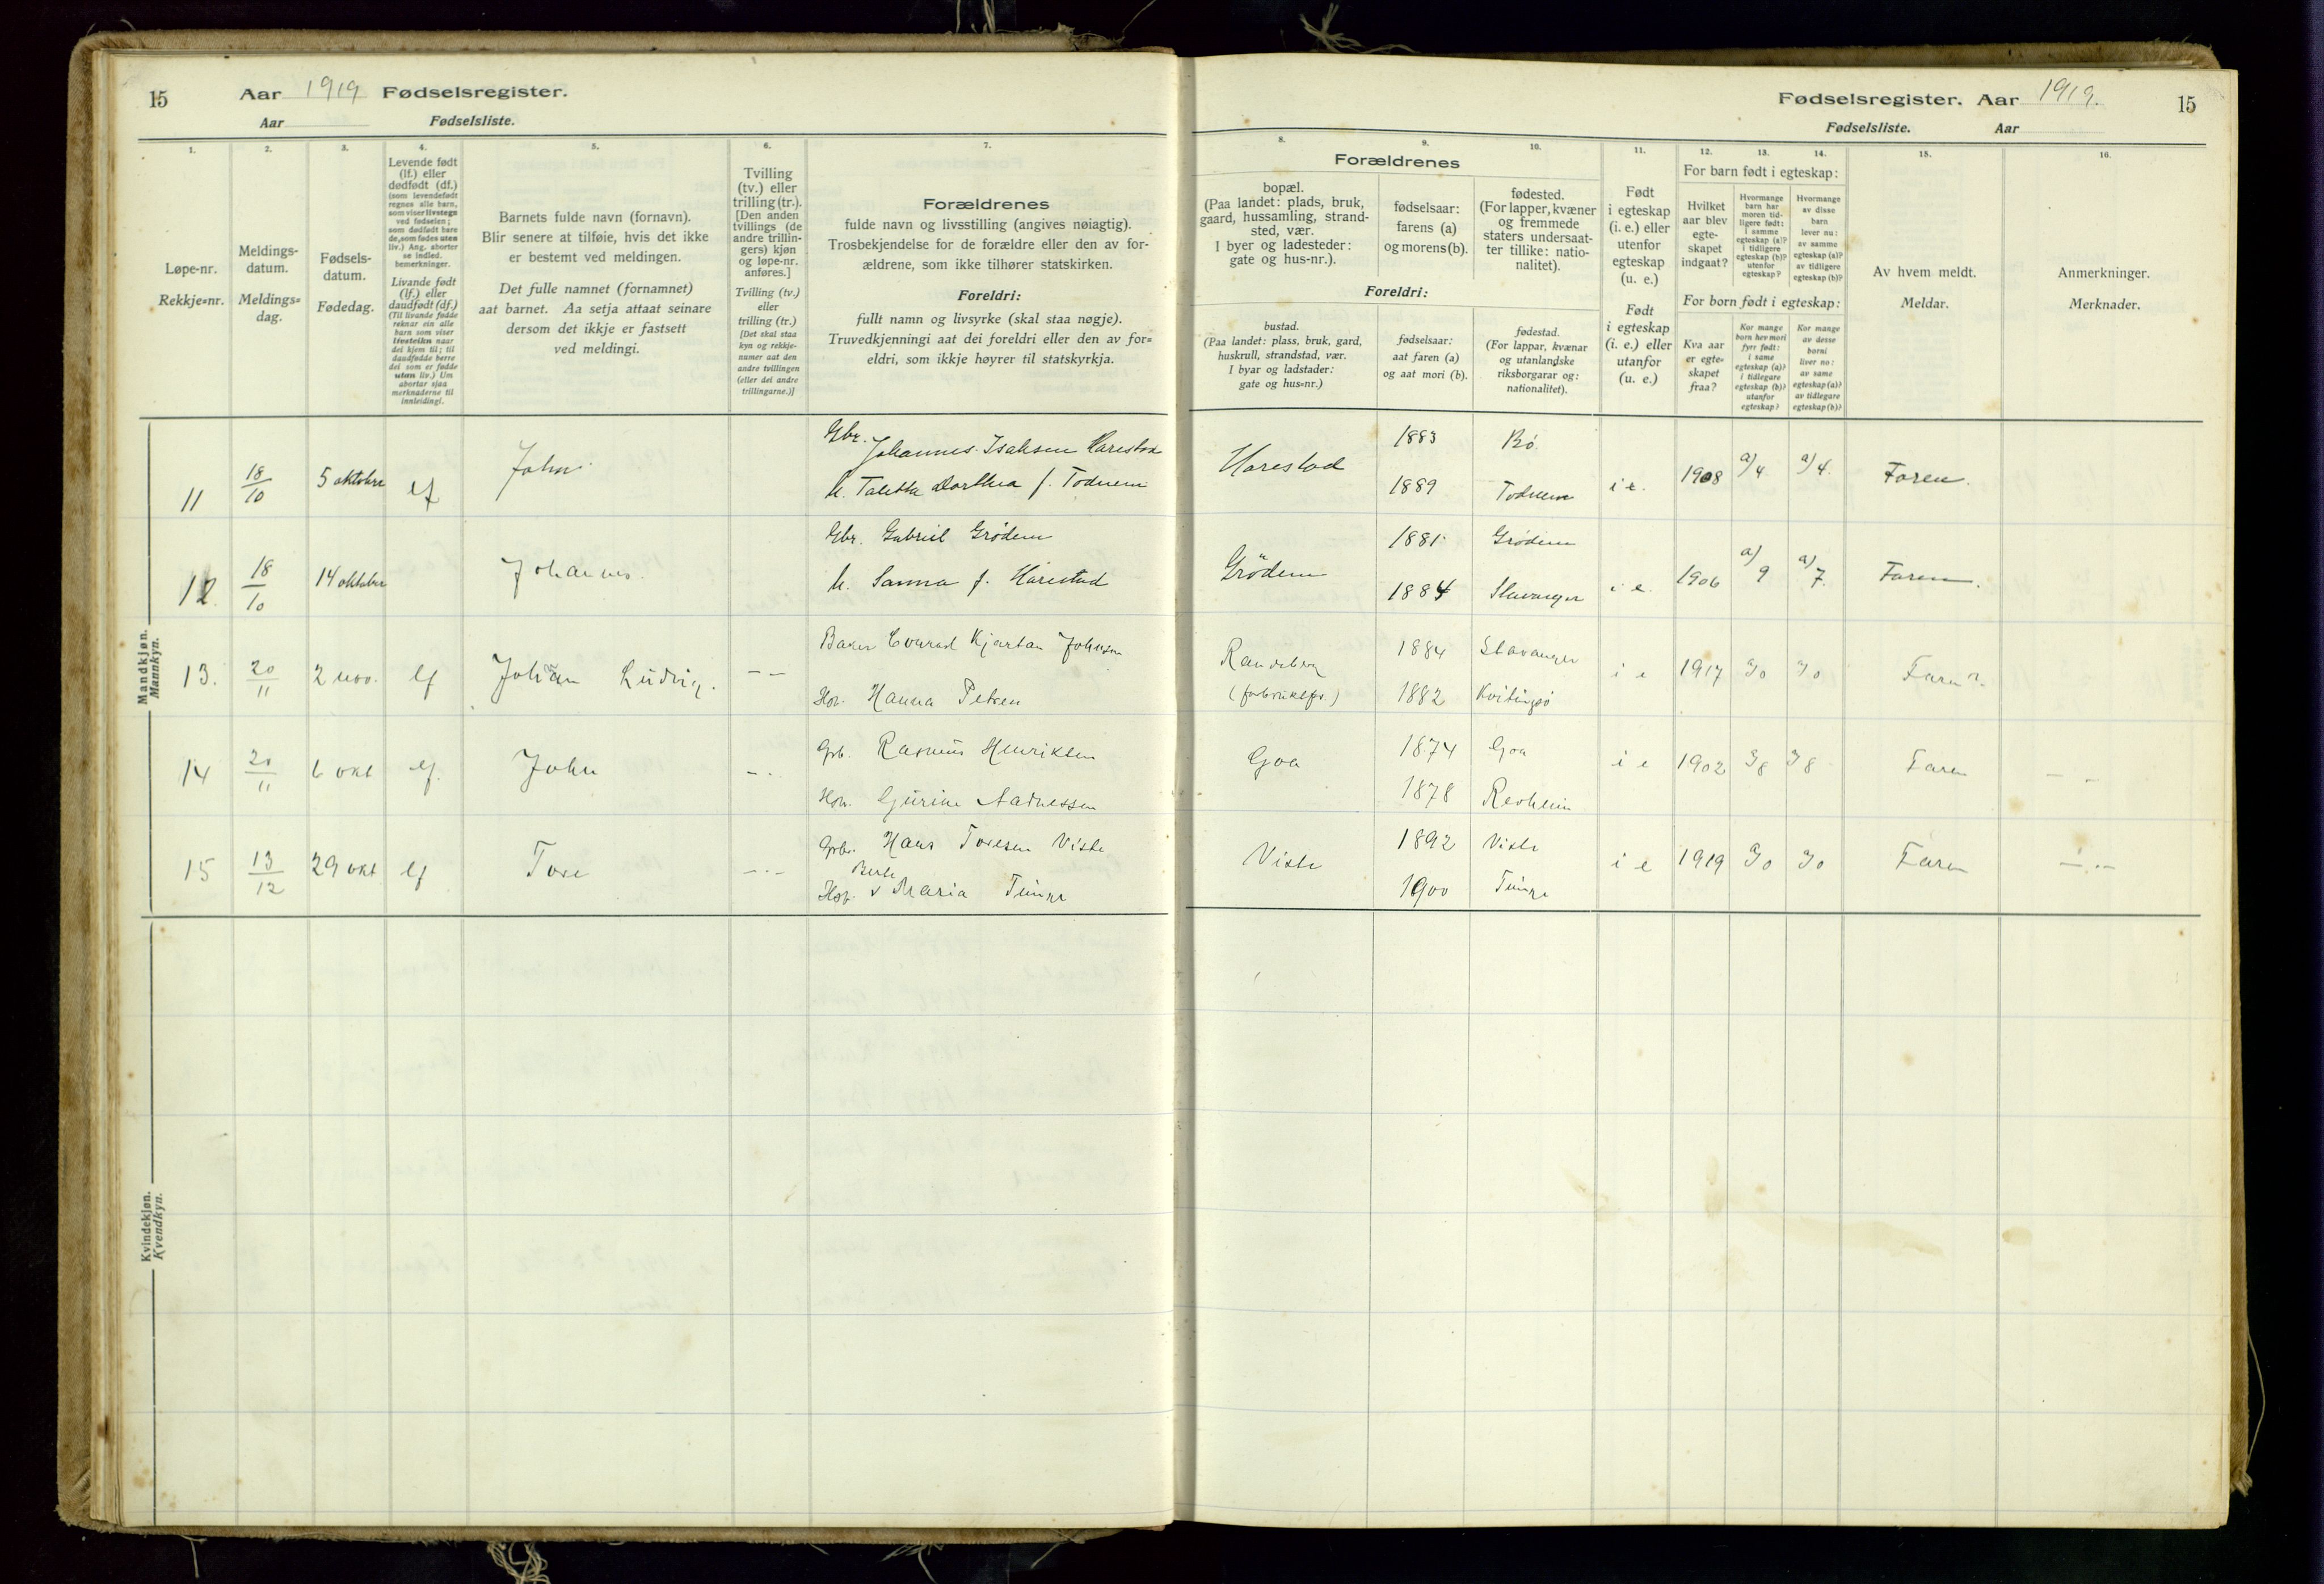 15 Aar 1919 Fødselsregister.
Aar Fødselsliste.
1. 2. 3. 4. 5. 6. 7.
Løpe-nr.
Rekkje=nr.
Meldings-
datum.
Meldings=
dag.
Fødsels-
datum.
Fødedag.
Levende født
(lf.) eller
dødfødt (df.)
(som levendefødt
regnes alle barn,
som viser livstegn
ved fødselen;
som dødfødt bare
de, som fødes uten
liv.) Ang. aborter
se indled.
bemerkninger.
Livande født
(lf.) eller
daudfødt (df.)
(Til livande fødde
reknar ein alle
barn som viser
livsteikn naar
dei kjem til; til
daudfødde berre
dei som er fødde
utan liv.) Um
abortar sjaa
merknaderne til
innleidingi.
Barnets fulde navn (fornavn).
Blir senere at tilføie, hvis det ikke
er bestemt ved meldingen.
Det fulle namnet (fornamnet)
aat barnet. Aa setja attaat seinare
dersom det ikkje er fastsett
ved meldingi.
Tvilling
(tv.) eller
trilling (tr.).
[Den anden
tvillings (de
andre trillin-
gers) kjøn
og løpe-nr.
anføres.]
Tvilling (tv.)
eller
trilling (tr.)
[Det skal staa
kyn og rekkje-
numer aat den
andre tvillingen
(eller dei andre
trillingarne.)]
Forældrenes
fulde navn og livsstilling (angives nøiagtig).
Trosbekjendelse for de forældre eller den av for-
ældrene, som ikke tilhører statskirken.
Foreldri:
fullt namn og livsyrke (skal staa nøgje).
Truvedkjenningi aat dei foreldri eller den av for=
eldri, som ikkje høyrer til statskyrkja.
Mandkjøn.
Mannkyn.
11 18/10 5 oktober lf John Gbr. Johannes Isaksen Harestad
h. Taletta Dorthea f. Todnem
12 18/10 14 oktober Johannes. Gbr. Gabriel Grödem
h. Sanna f. Harestad
13. 20/11 2 nov. lf Johan Ludvig. — — Baker Conrad Kjartan Johnsen
Hu. Hanna Petersen
14 20/11 6 okt lf. John — . Grb. Rasmus Henriksen
Hu. Gurine Aadnessen
15 13/12 29 okt lf Tore — . — Grbr. Hans Toresen Viste
Berte
Hu. v Maria Tunge
Kvindekjøn.
Kvendkyn.
Fødselsregister. Aar 1919. 15
Fødselsliste. Aar
8. 9. 10. 11. 12. 13. 14. 15. 16.
Forældrenes
bopæl.
(Paa landet: plads, bruk,
gaard, hussamling, strand-
sted, vær.
I byer og ladesteder:
gate og hus-nr.).
fødselsaar:
farens (a)
og morens (b).
fødested.
(For lapper, kvæner
og fremmede
staters undersaat-
ter tillike: natio-
nalitet).
Foreldri:
bustad.
(Paa landet: plass, bruk, gard,
huskrull, strandstad, vær.
I byar og ladstader:
gate og hus=nr.)
fødselsaar:
aat faren (a)
og aat mori (b).
fødestad.
(For lappar, kvænar
og utanlandske
riksborgarar og:
nationalitet).
Født
i egteskap
(i. e.) eller
utenfor
egteskap
(u. e.)
Født
i egteskap
(i. e.) eller
utanfor
(u. e.)
For barn født i egteskap:
Hvilket
aar blev
egte-
skapet
indgaat?
Hvormange
barn har
moren tid-
ligere født:
i samme
egteskap (a)?
i tidligere
egteskap (b)?
utenfor
egteskap?
Hvormange
av disse
barn
lever nu:
av samme
egteskap (a)?
av tidligere
egteskap (b)?
For born født i egteskap:
Kva aar
er egte=
skapet
fraa?
Kor mange
born hev mori
fyrr født:
i same
egteskap (a)?
i tidlegare
egteskap (b)?
utanfor
egteskap?
Kor mange
av desse
borni
liver no:
av same
egteskap (a)?
av tidlegare
egteskap (b)?
Av hvem meldt.
Meldar.
Anmerkninger.
Merknader.
Harestad 1883 Bö. i e. 1908 a/4 a/4. Faren.
1889 Todnem
Grödem 1881 Grödem i e. 1906 a/9 a/7. Faren.
1884 Stavanger
Randeberg 1884 Stavanger i e 1917 a/0 a/0 Faren.
1882 Kvitingsö
Goa 1874 Goa i e 1902 a/8 a/8 Faren — -
1878 Revheim
Viste 1892 Viste i e 1919 a/0 a/0 Faren — . —
1900 Tunge